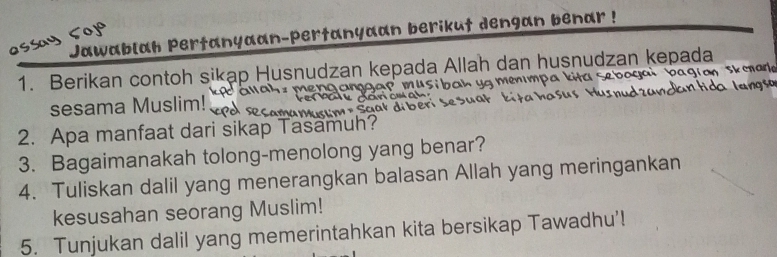 essay sap
Jawablah pertanyaan-pertanyaan berikut dengan benar!
1. Berikan contoh sikap Husnudzan kepada Allah dan husnudzan kepada
kpd allah: menganggap musibah yg menimpa kita sebagai bagian skenario
terbaik dari allah.
sesama Muslim!
kpd sesama muslim = saat diberi sesuat kita hasus Husnudzandan tida langsu
2. Apa manfaat dari sikap Tasamuh?
3. Bagaimanakah tolong-menolong yang benar?
4. Tuliskan dalil yang menerangkan balasan Allah yang meringankan
kesusahan seorang Muslim!
5. Tunjukan dalil yang memerintahkan kita bersikap Tawadhu'!